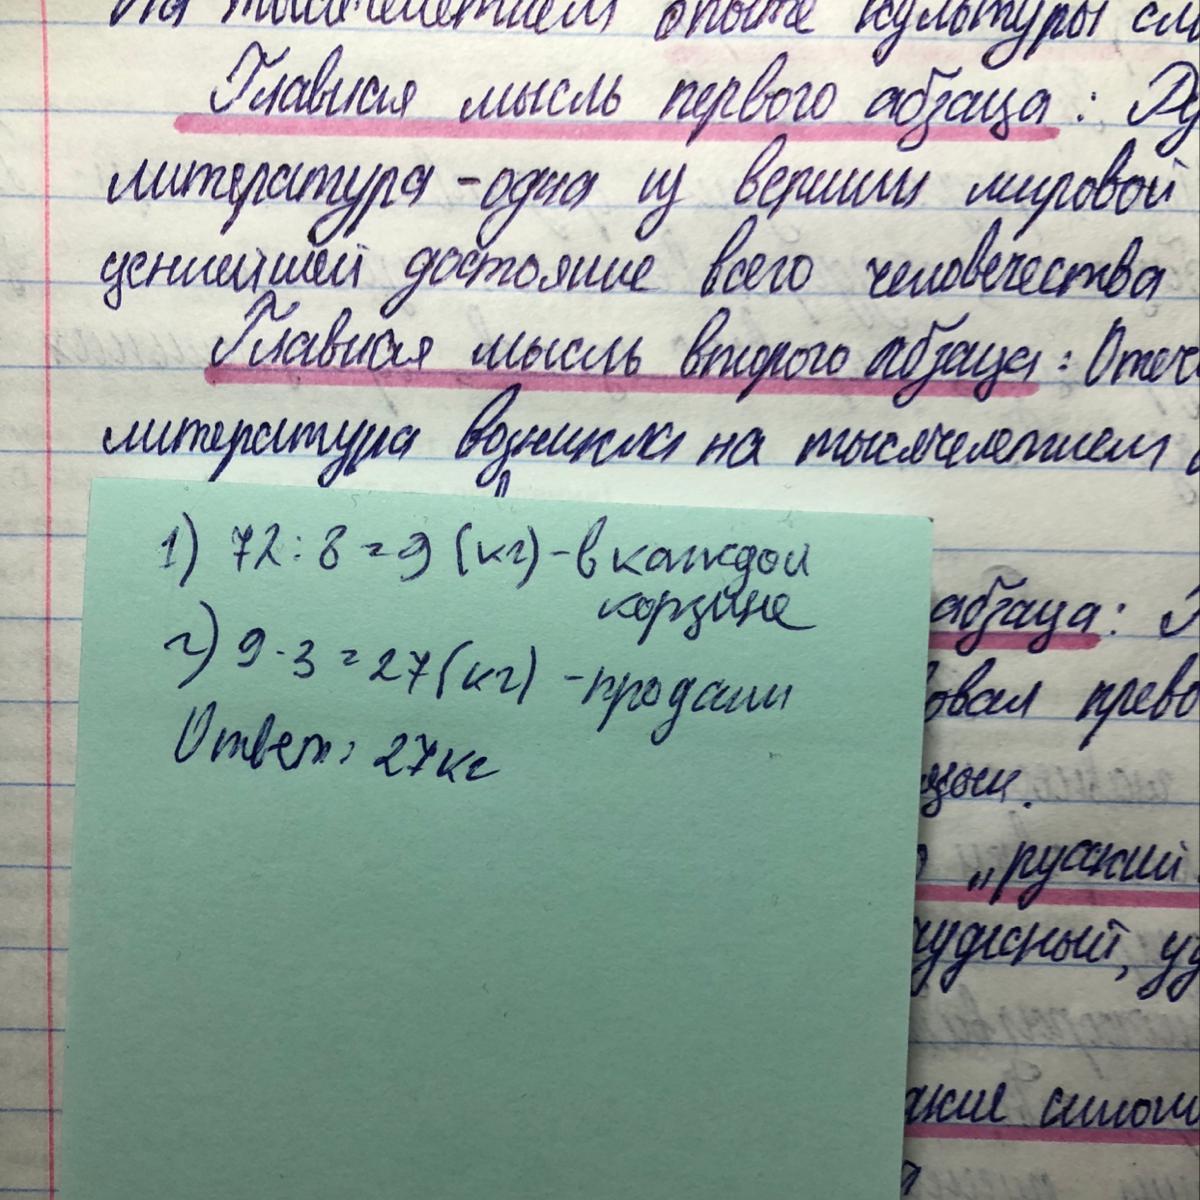 на тысячелетнем опыте культуры сло
Главная мысль первого абзаца: Ру
литература - одна из вершин мировой
ценнейшей достояние всего человечества
Главная мысль второго абзаца: Отеч
литература возникла на тысячелетнем
1) 72:8=9 (кг) - в каждой
корзине
абзаца:
2) 9·3=27(кг) - продали
овал прево
Ответ: 27кг
„русский
чудесный, уд
акие синон